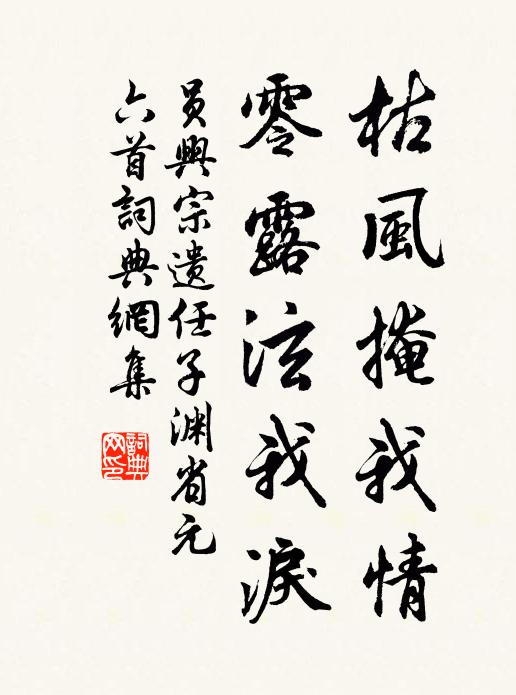 枯風掩我情
零露泫我淚
員興宗遺任子淵省元
六首詞典網集
詞典网印